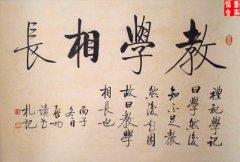 教學相長
禮記學記
曰學然後
知不足教
然後知困
故曰教學
相長也
丙子
冬日
札記